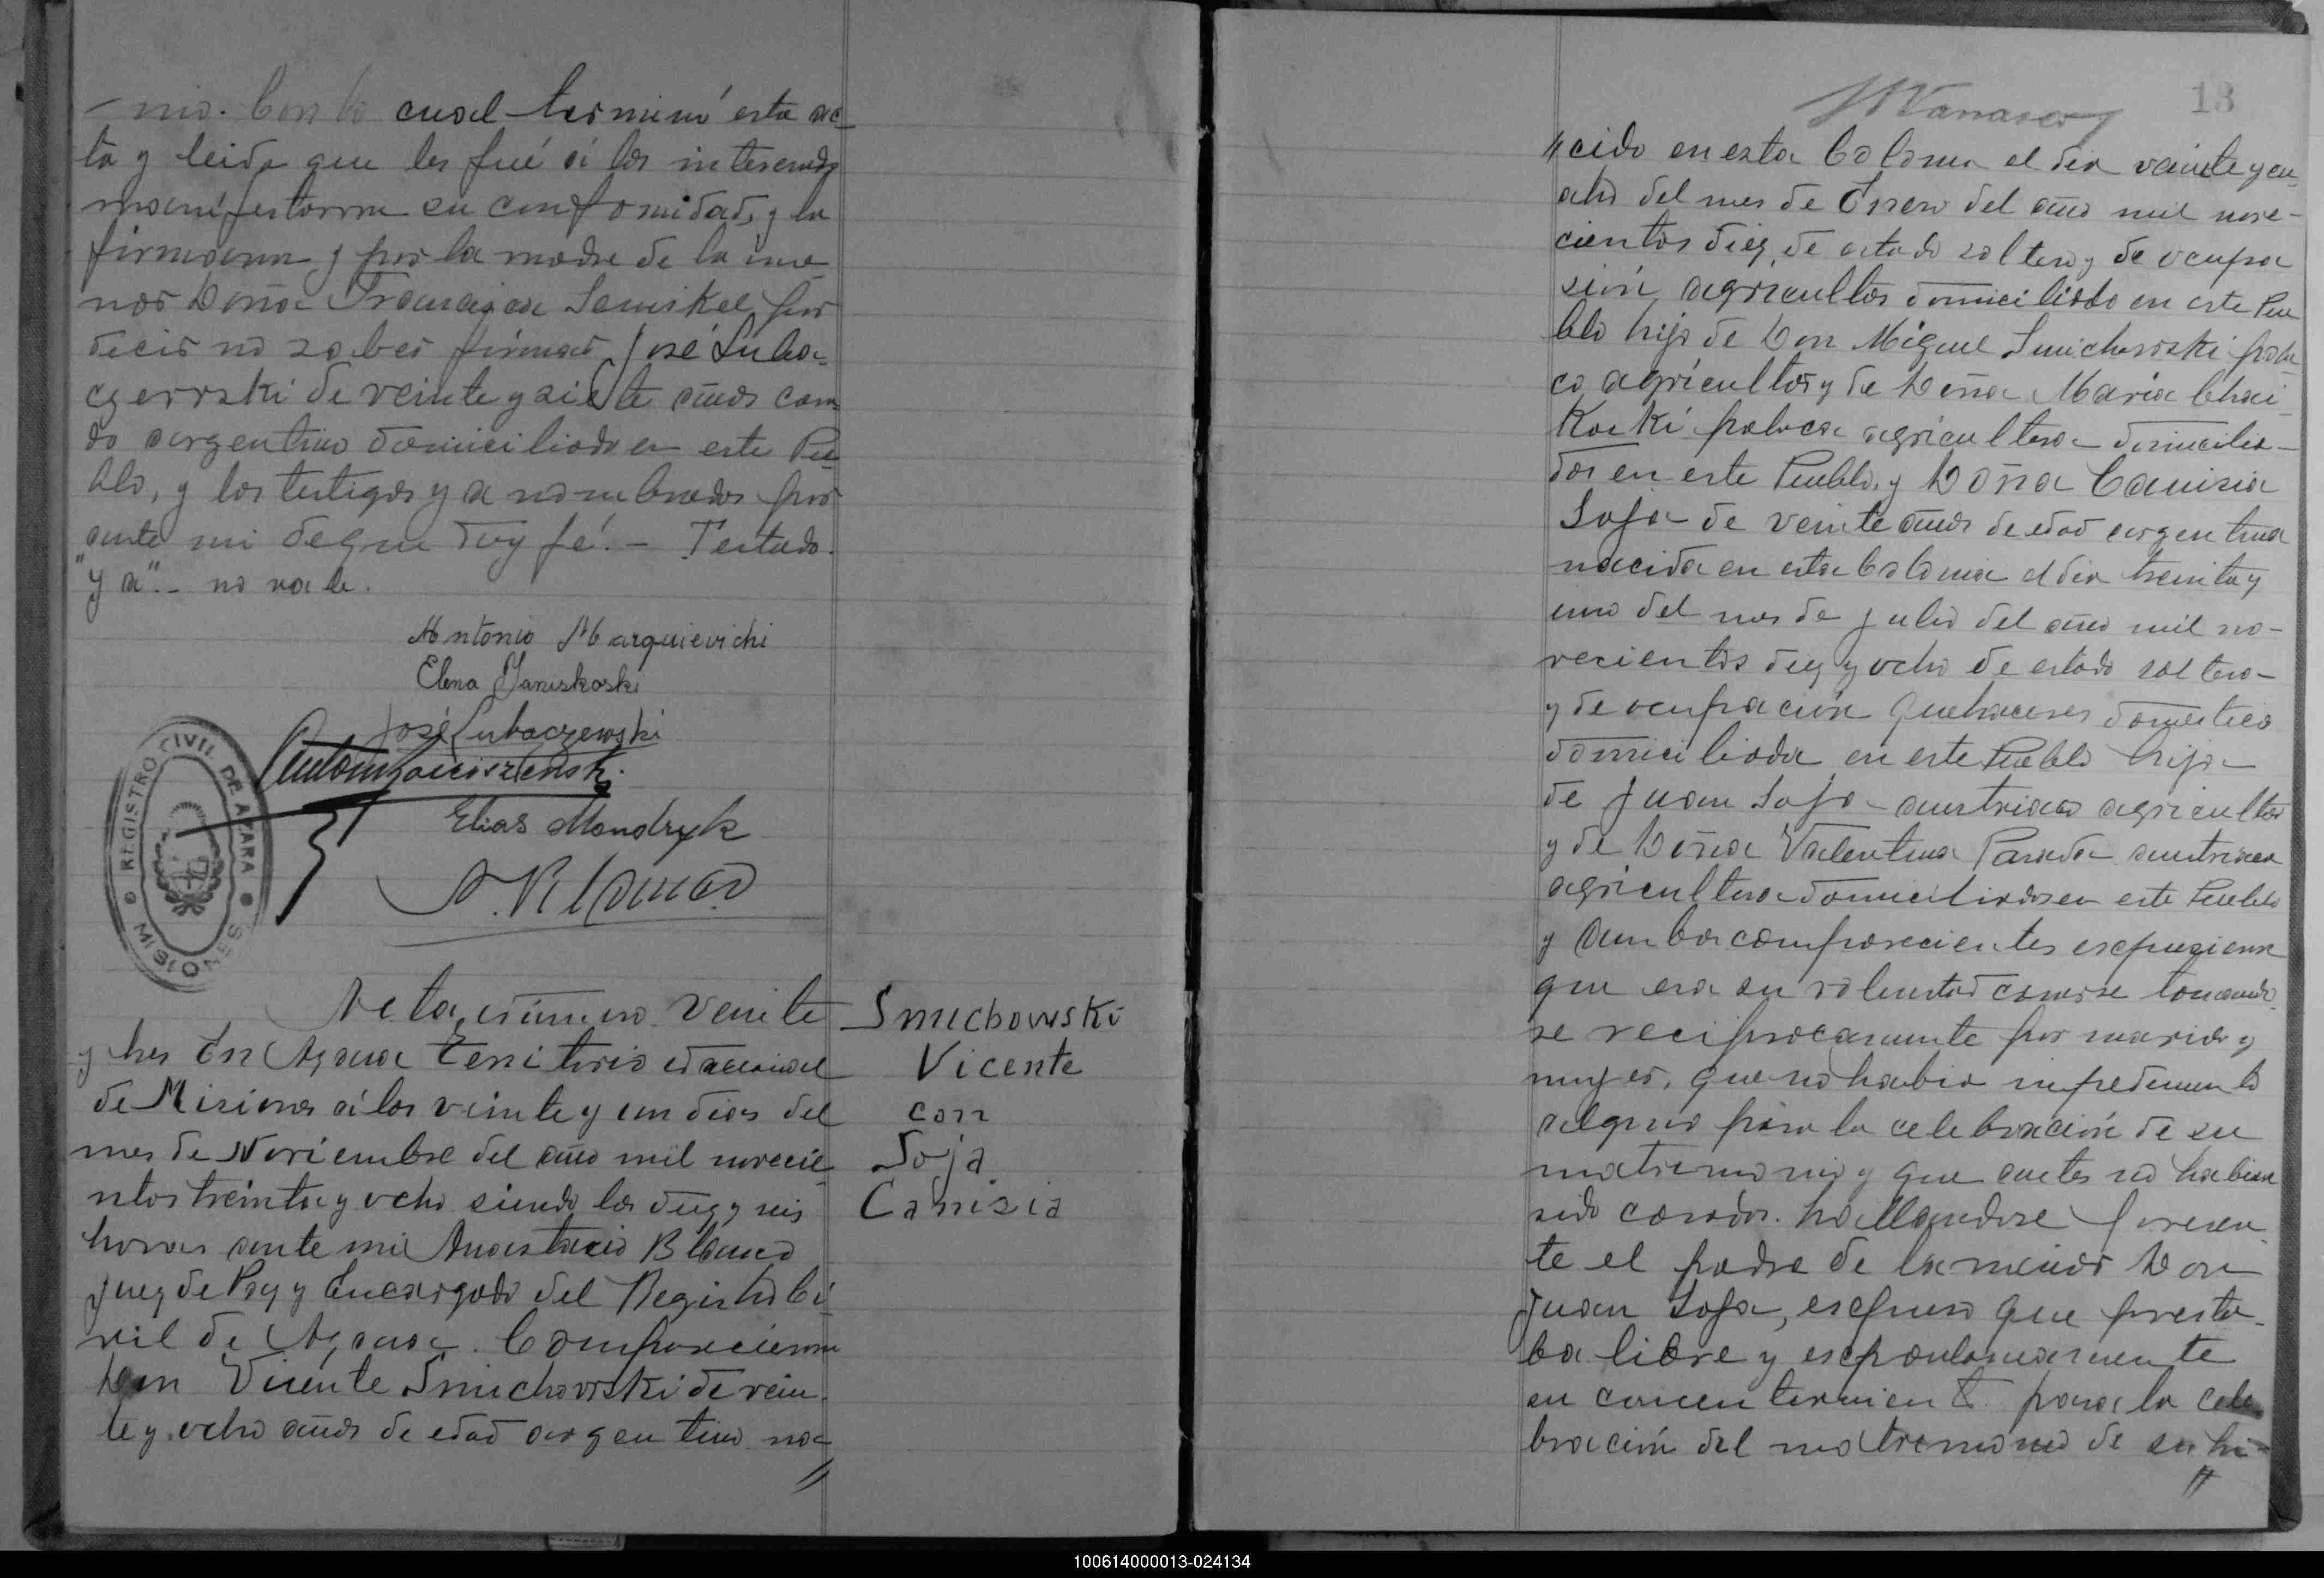 nio. Con lo cual terminó esta ac
ta y leida que les fué á los interesados
manifestaron su conformidad, y la
firmaron y por la madre de la me
nor Doña Francisca Semskel por
decir no saber firmar José Luba-
czevski de veinte y siete años casa
do argentino domiciliado en este Pue
blo, y los testigos y a nombrados por
ante mi de que doy fé. – Testado.
"y a".- no vale.
Antonio Marquievichi
Elena Janiskoski
José Lubaczewski
Elias Mondryk
A. Blanco
REGISTRO CIVIL DE APARA
MISIONES
Acta número veinte
y tres En Azara Territorio Nacional
de Misiones á los veinte y un dias del
mes de Noviembre del año mil novecie
ntos treinta y ocho siendo las diez y seis
horas ante mi Anastacio Blanco
Juez de Paz y Encargado del Registro Ci
vil de Azara. Comparecieron
Don Vicente Smichowski de vein
te y ocho años de edad argentino na
//
Smichowski
Vicente
con
Soja
Canisia
18
//cido en esta Colonia el dia veinte y cu
atro del mes de Enero del año mil nove-
cientos diez, de estado soltero y de ocupa
sión agricultor domiciliado en este Pue
blo hijo de Don Miguel Smichowski pola
co agricultor y de Doña Maria Chai
Koski polaca agricultora domicilia-
dos en este Pueblo, y Doña Canisia
Soja de veinte años de edad argentina
nacida en esta Colonia el dia treinta y
uno del mes de julio del año mil no-
vecientos diez y ocho de estado soltera
y de ocupación quehaceres domestico
domiciliada en este Pueblo hija
de Juan Soja austriaco agricultor
y de Doña Valentina Parada austriaca
agricultora domiciliados en este Pueblo
y ambos comparecientes espusieron
que era su voluntad casarse tomando
se reciprocamente por marido y
mujer, que no habia impedimento
alguno para la celebración de su
matrimonio y que antes no habian
sido casados. hallandose presen
te el padre de la menor Don
Juan Soja, espuso que presta-
ba libre y espontaneamente
su consentimiento para la cele
bración del matrimonio de su hi-
//
100614000013-024134